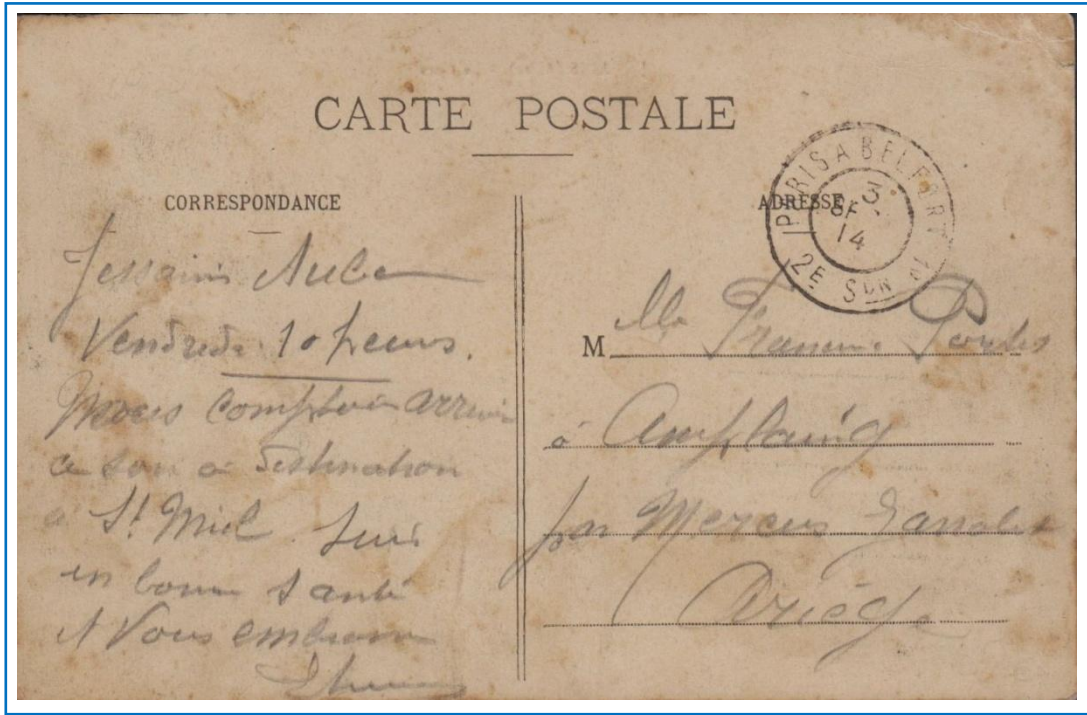 CARTE POSTALE
CORRESPONDANCE
Jessains Aube
Vendredi 10 heures.
Nous comptons arriver
ce soir à destination
à St Miel. Suis
en bonne santé
et Vous embrasse
ADRESSE
PARIS A BELFORT 1°
3
SE
14
2E SON
M lle Francine
à Amplaing
par Mercus Garrabet
Ariège